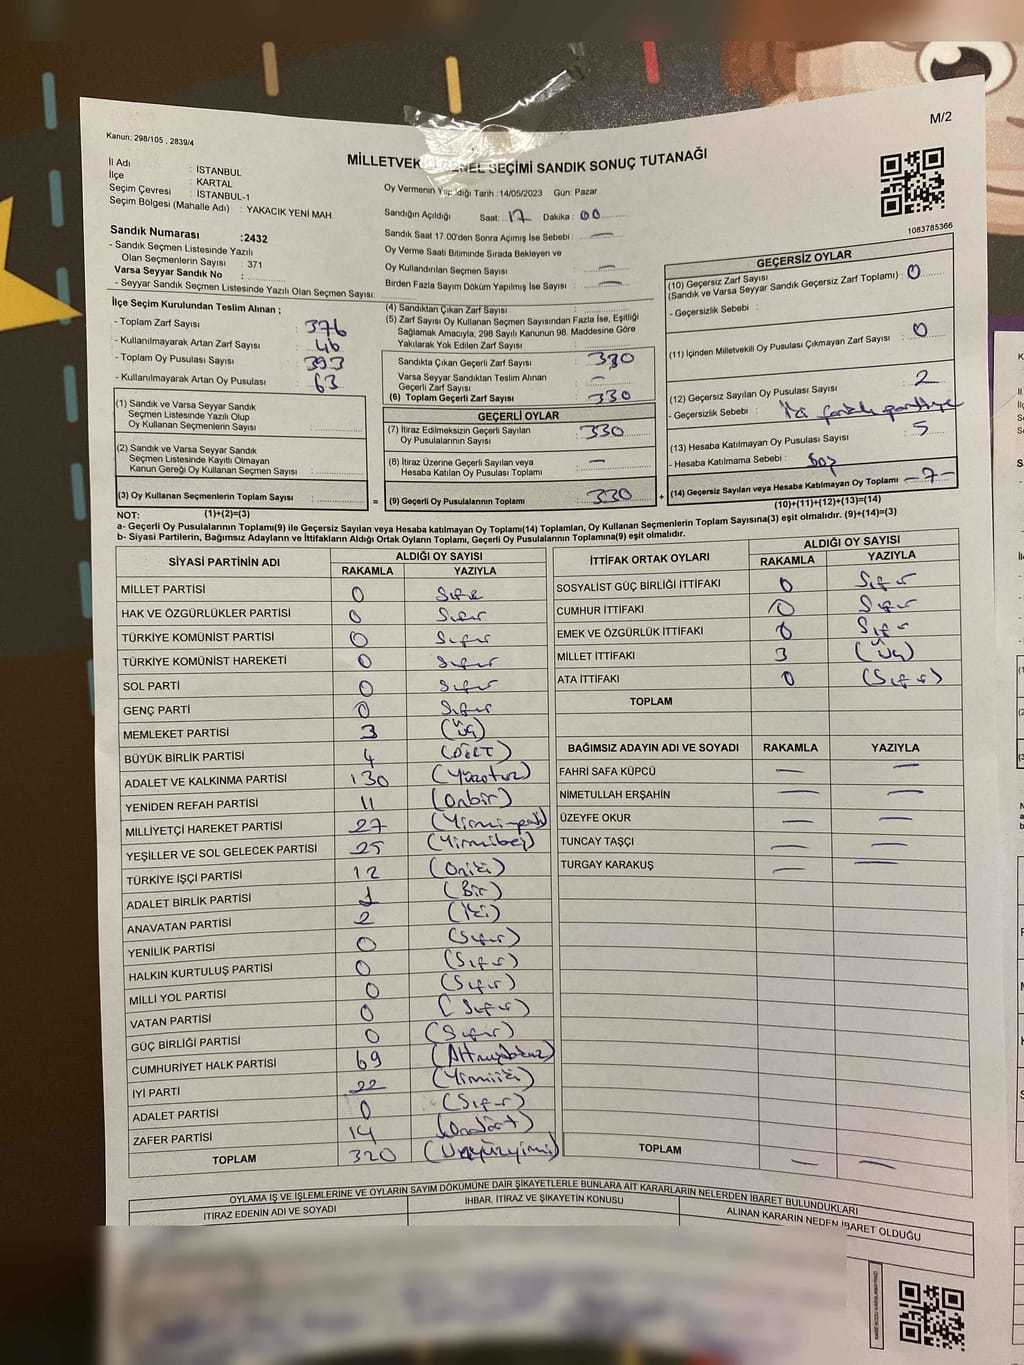 Kanun, 298/105 , 2839/4
M/2
MİLLETVEK GENEL SEÇİMİ SANDIK SONUÇ TUTANAĞI
İl Adı : İSTANBUL
İlçe : KARTAL
Seçim Çevresi : İSTANBUL-1
Seçim Bölgesi (Mahalle Adı) : YAKACIK YENİ MAH.
Oy Vermenin Yapıldığı Tarih :14/05/2023 Gün: Pazar
Sandığın Açıldığı Saat: 17 Dakika : 00
Sandık Saat 17.00'den Sonra Açılmış İse Sebebi : —
Oy Verme Saati Bitiminde Sırada Bekleyen ve
Oy Kullandırılan Seçmen Sayısı : —
Birden Fazla Sayım Döküm Yapılmış İse Sayısı : —
1083785366
Sandık Numarası :2432
- Sandık Seçmen Listesinde Yazılı
Olan Seçmenlerin Sayısı : 371
Varsa Seyyar Sandık No :
- Seyyar Sandık Seçmen Listesinde Yazılı Olan Seçmen Sayısı:
İlçe Seçim Kurulundan Teslim Alınan ;
- Toplam Zarf Sayısı : 376
- Kullanılmayarak Artan Zarf Sayısı : 46
- Toplam Oy Pusulası Sayısı : 393
- Kullanılmayarak Artan Oy Pusulası : 63
(1) Sandık ve Varsa Seyyar Sandık
Seçmen Listesinde Yazılı Olup
Oy Kullanan Seçmenlerin Sayısı :
(2) Sandık ve Varsa Seyyar Sandık
Seçmen Listesinde Kayıtlı Olmayan
Kanun Gereği Oy Kullanan Seçmen Sayısı :
(3) Oy Kullanan Seçmenlerin Toplam Sayısı :
(1)+(2)=(3)
(4) Sandıktan Çıkan Zarf Sayısı :
(5) Zarf Sayısı Oy Kullanan Seçmen Sayısından Fazla İse, Eşitliği
Sağlamak Amacıyla, 298 Sayılı Kanunun 98. Maddesine Göre
Yakılarak Yok Edilen Zarf Sayısı :
Sandıkta Çıkan Geçerli Zarf Sayısı : 330
Varsa Seyyar Sandıktan Teslim Alınan
Geçerli Zarf Sayısı : —
(6) Toplam Geçerli Zarf Sayısı : 330
GEÇERLİ OYLAR
(7) İtiraz Edilmeksizin Geçerli Sayılan
Oy Pusulalarının Sayısı : 330
(8) İtiraz Üzerine Geçerli Sayılan veya
Hesaba Katılan Oy Pusulası Toplamı : —
= (9) Geçerli Oy Pusulalarının Toplamı : 330 +
GEÇERSİZ OYLAR
(10) Geçersiz Zarf Sayısı
(Sandık ve Varsa Seyyar Sandık Geçersiz Zarf Toplamı) : 0
- Geçersizlik Sebebi :
(11) İçinden Milletvekili Oy Pusulası Çıkmayan Zarf Sayısı : 0
(12) Geçersiz Sayılan Oy Pusulası Sayısı : 2
- Geçersizlik Sebebi : İki farklı partiye
(13) Hesaba Katılmayan Oy Pusulası Sayısı : 5
- Hesaba Katılmama Sebebi : boş
(14) Geçersiz Sayılan veya Hesaba Katılmayan Oy Toplamı – 7 –
(10)+(11)+(12)+(13)=(14)
NOT:
a- Geçerli Oy Pusulalarının Toplamı(9) ile Geçersiz Sayılan veya Hesaba katılmayan Oy Toplamı(14) Toplamları, Oy Kullanan Seçmenlerin Toplam Sayısına(3) eşit olmalıdır. (9)+(14)=(3)
b- Siyasi Partilerin, Bağımsız Adayların ve İttifakların Aldığı Ortak Oyların Toplamı, Geçerli Oy Pusulalarının Toplamına(9) eşit olmalıdır.
SİYASİ PARTİNİN ADI ALDIĞI OY SAYISI
RAKAMLA YAZIYLA
MİLLET PARTİSİ 0 Sıfır
HAK VE ÖZGÜRLÜKLER PARTİSİ 0 Sıfır
TÜRKİYE KOMÜNİST PARTİSİ 0 Sıfır
TÜRKİYE KOMÜNİST HAREKETİ 0 Sıfır
SOL PARTİ 0 Sıfır
GENÇ PARTİ 0 Sıfır
MEMLEKET PARTİSİ 3 (Üç)
BÜYÜK BİRLİK PARTİSİ 4 (DÖRT)
ADALET VE KALKINMA PARTİSİ 130 (Yüzotuz)
YENİDEN REFAH PARTİSİ 11 (Onbir)
MİLLİYETÇİ HAREKET PARTİSİ 27 (Yirmiyedi)
YEŞİLLER VE SOL GELECEK PARTİSİ 25 (Yirmibeş)
TÜRKİYE İŞÇİ PARTİSİ 12 (Oniki)
ADALET BİRLİK PARTİSİ 1 (Bir)
ANAVATAN PARTİSİ 2 (İki)
YENİLİK PARTİSİ 0 (Sıfır)
HALKIN KURTULUŞ PARTİSİ 0 (Sıfır)
MİLLİ YOL PARTİSİ 0 (Sıfır)
VATAN PARTİSİ 0 (Sıfır)
GÜÇ BİRLİĞİ PARTİSİ 0 (Sıfır)
CUMHURİYET HALK PARTİSİ 69 (Altmışdokuz)
İYİ PARTİ 22 (Yirmiiki)
ADALET PARTİSİ 0 (Sıfır)
ZAFER PARTİSİ 14 (Ondört)
TOPLAM 320 (Üçyüzyirmi)
İTTİFAK ORTAK OYLARI ALDIĞI OY SAYISI
RAKAMLA YAZIYLA
SOSYALİST GÜÇ BİRLİĞİ İTTİFAKI 0 Sıfır
CUMHUR İTTİFAKI 0 Sıfır
EMEK VE ÖZGÜRLÜK İTTİFAKI 0 Sıfır
MİLLET İTTİFAKI 3 (Üç)
ATA İTTİFAKI 0 (Sıfır)
TOPLAM
BAĞIMSIZ ADAYIN ADI VE SOYADI RAKAMLA YAZIYLA
FAHRİ SAFA KÜPCÜ — —
NİMETULLAH ERŞAHİN — —
ÜZEYFE OKUR — —
TUNCAY TAŞÇI — —
TURGAY KARAKUŞ — —
TOPLAM — —
OYLAMA İŞ VE İŞLEMLERİNE VE OYLARIN SAYIM DÖKÜMÜNE DAİR ŞİKAYETLERLE BUNLARA AİT KARARLARIN NELERDEN İBARET BULUNDUKLARI
İTİRAZ EDENİN ADI VE SOYADI İHBAR, İTİRAZ VE ŞİKAYETİN KONUSU ALINAN KARARIN NEDEN İBARET OLDUĞU